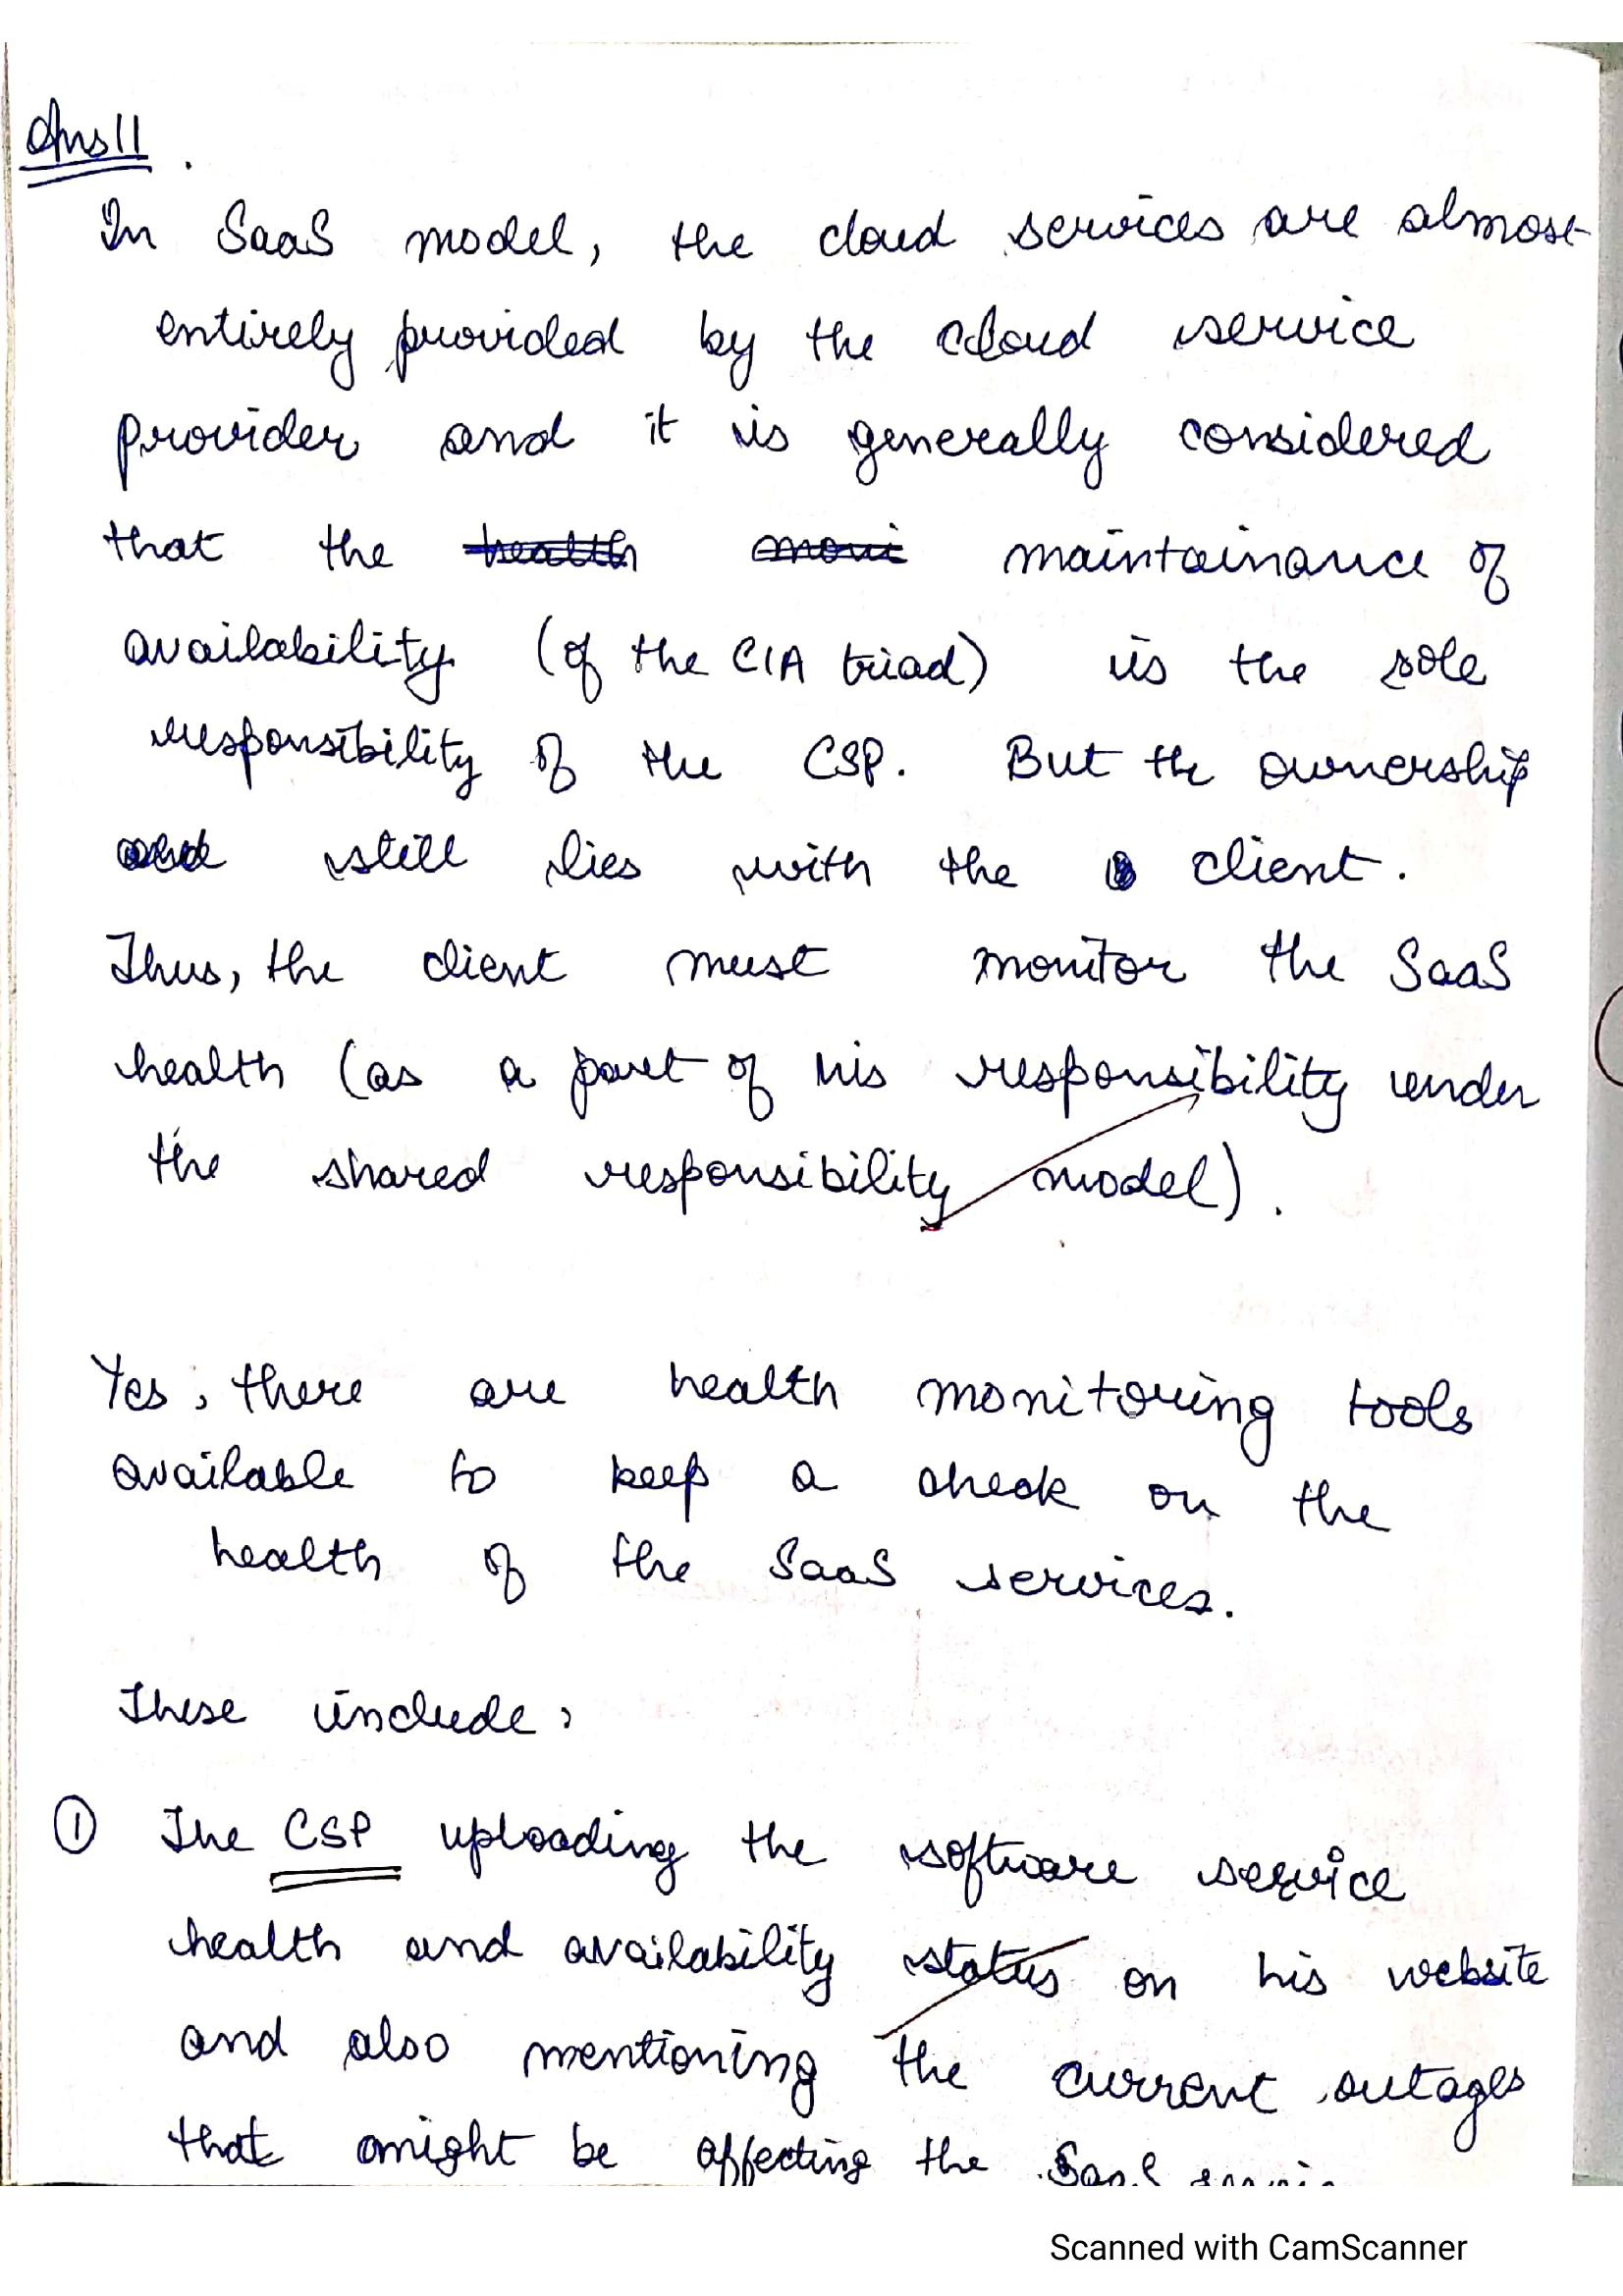 Ans 11.
In SaaS model, the cloud services are almost
entirely provided by the cloud service
provider and it is generally considered
that the health moni maintainance of
availability (of the CIA triad) is the sole
responsibility of the CSP. But the ownership
still lies with the client.
Thus, the client must monitor the SaaS
health (as a part of his responsibility under
the shared responsibility model).
Yes, there are health monitoring tools
available to keep a check on the
health of the SaaS services.
These include:
① The CSP uploading the software service
health and availability status on his website
and also mentioning the current outages
that might be affecting the SaaS
Scanned with CamScanner